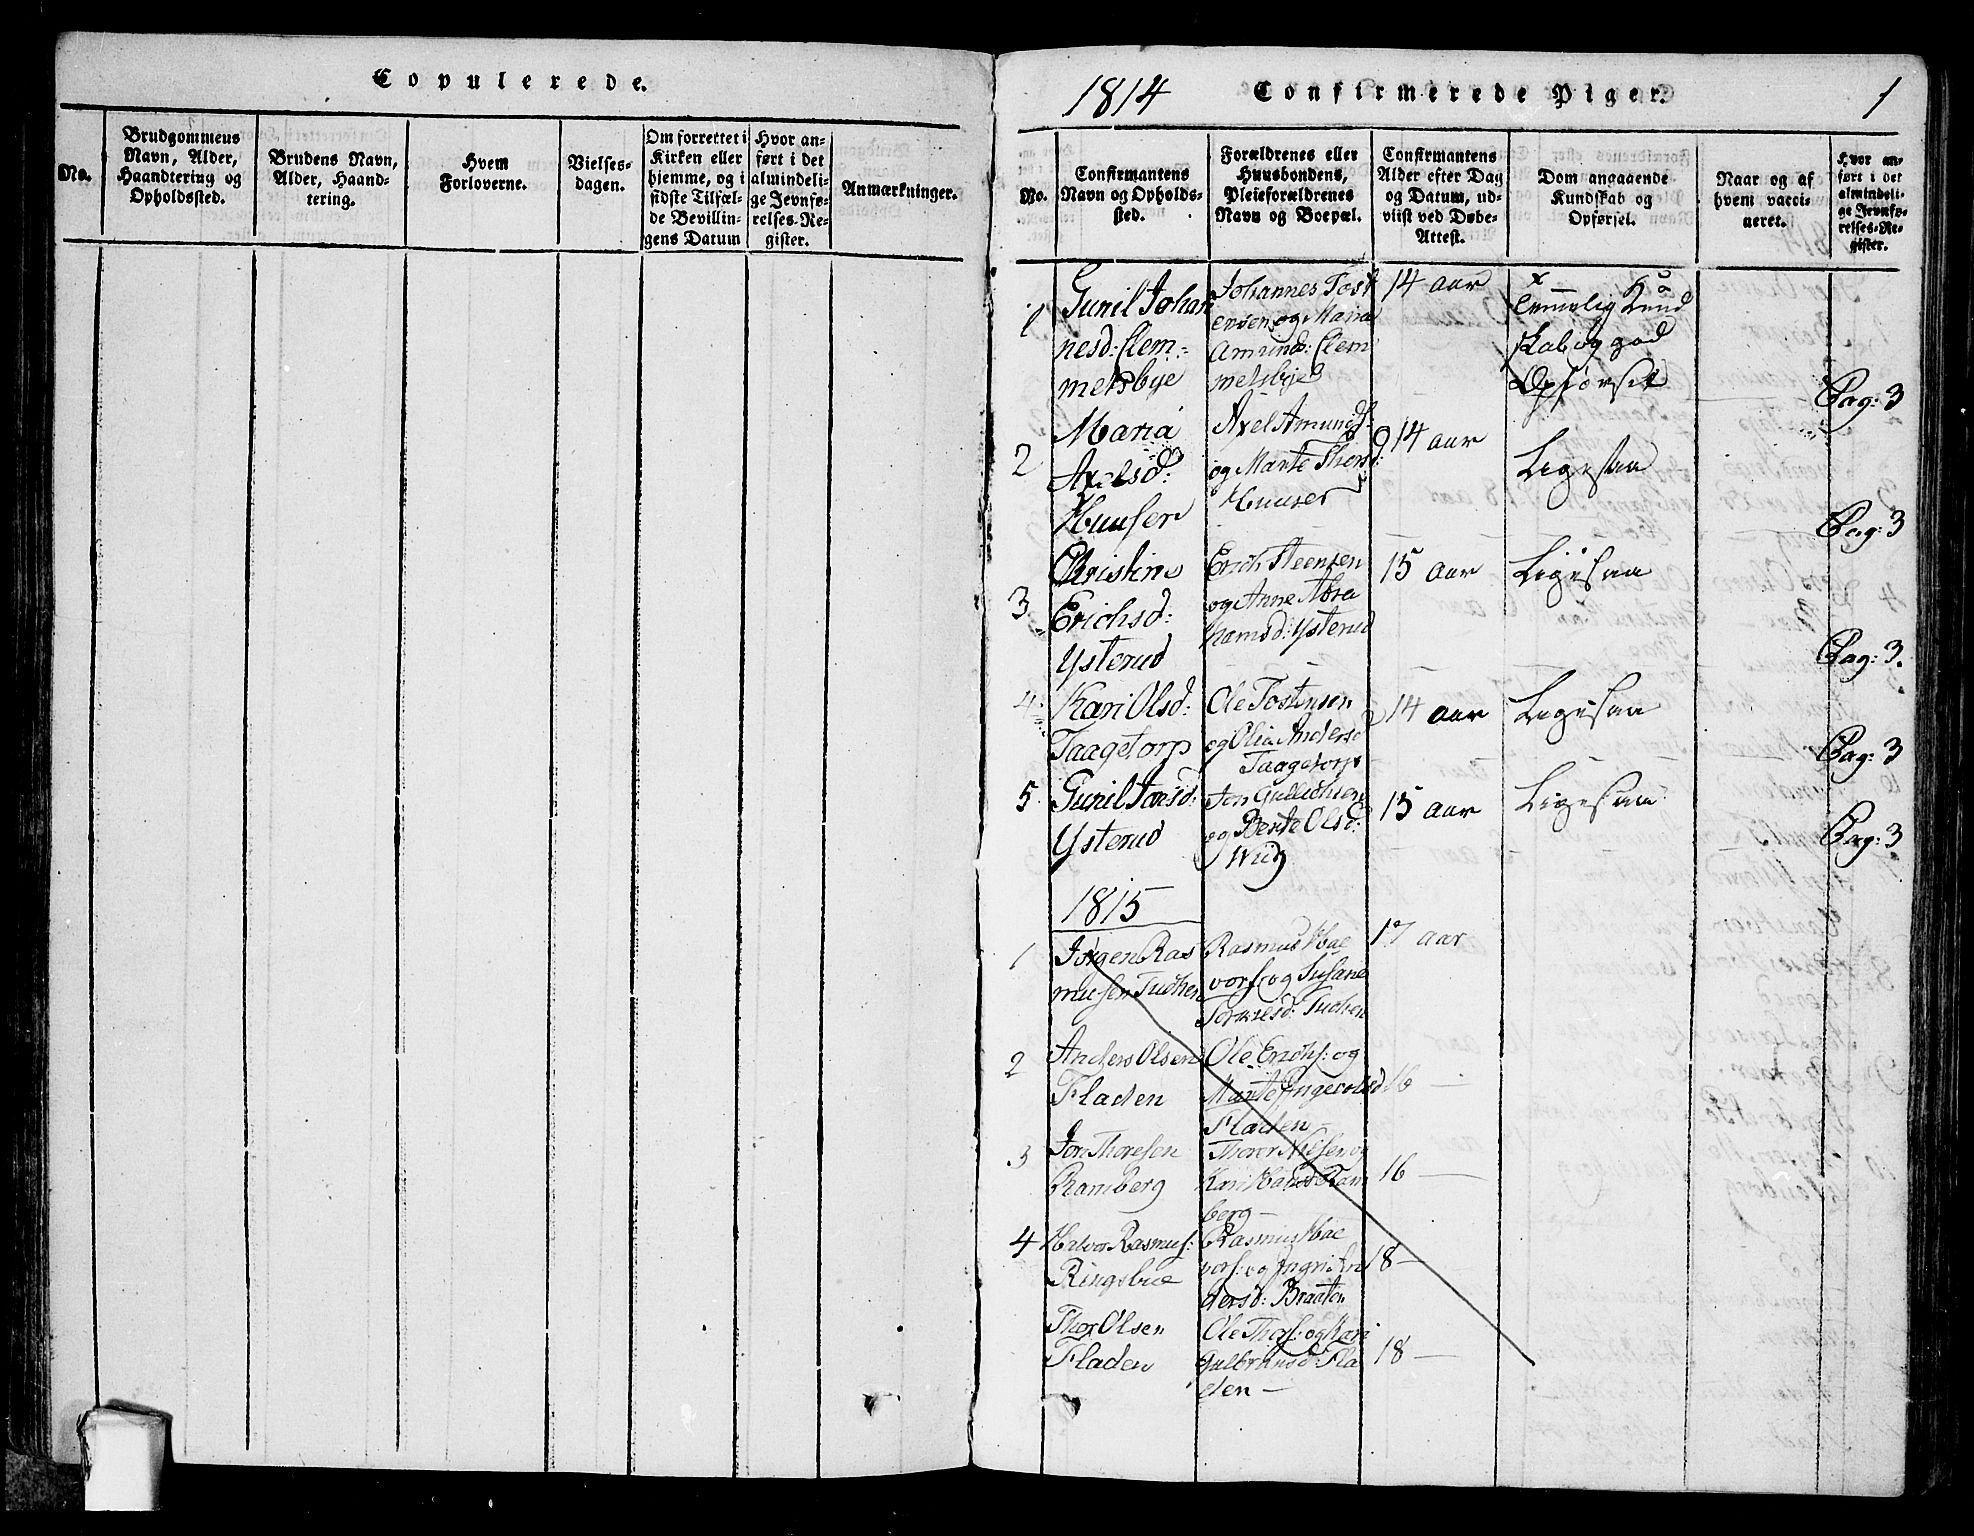 Copulerede.
No.
Brudgommens
Navn, Alder,
Haandtering og
Opholdssted.
Brudens Navn,
Alder, Haand-
tering.
Hvem
Forloverne.
Vielses-
dagen.
Om forrettet i
Kirken eller
hjemme, og i
sidste Tilfæl-
de Bevillin-
gens Datum
Hvor an-
ført i det
almindeli-
ge Jevnfø-
relses-Re-
gister.
Anmærkninger.
1814 Confirmerede Piger. 1
No.
Confirmantens
Navn og Opholds-
sted.
Forældrenes eller
Huusbondens,
Pleieforældrenes
Navn og Boepæl.
Confirmantens
Alder efter Dag
og Datum, ud-
viist ved Døbe-
Attest.
Dom angaaende
Kundskab og
Opførsel.
Naar og af
hvem vacci-
neret.
Hvor an-
ført i det
almindeli-
ge Jevnfø-
relses-Re-
gister.
1
Gunil Johan
nesd: Clem-
melsbye
Johannes Tost
ensen og Maria
Amunds: Clem
melsbye
14 aar
Temmelig Kund
skab og god
Opførsel
Pag: 3
2
Maria
Axelsd:
Huuser
Axel Amunds-
og Marte Thorsd:
Huuser
14 aar
Ligesaa
Pag: 3
3
Christine
Erichsd:
Ysterud
Erich Steensen
og Anne Abra
hamsd: Ysterud
15 aar
Ligesaa
Pag: 3.
4
Kari Olsd:
Taagetorp
Ole Tostensen
og Olia Andersd
Taagetorp
14 aar
Ligesaa
Pag: 3
5
Gunil Jonsd:
Ysterud
Jon Gulbdhsen
og Berte Olsd:
15 aar
Ligesaa
Pag: 3
1815
1
Jørgen Ras
musen Tuchen
Rasmus Hal
vors. og Susane
Tuchen
17 aar
2
Anders Olsen
Fladen
Ole Erichs: og
Marte Ingevolsd
Fladen
16 —
3
Jon Thoresen
Ramberg
Thorer Nilsen og
Kari Hansd Ram
berg —
16 —
4
Halvor Rasmus:
Ringsbue
Rasmus Hal
vors: og Ingri An
dersd: Braaten
18 —
Thor Olsen
Fladen
Ole Thors: og Kari
Gulbransd: Fla
den —
18 —